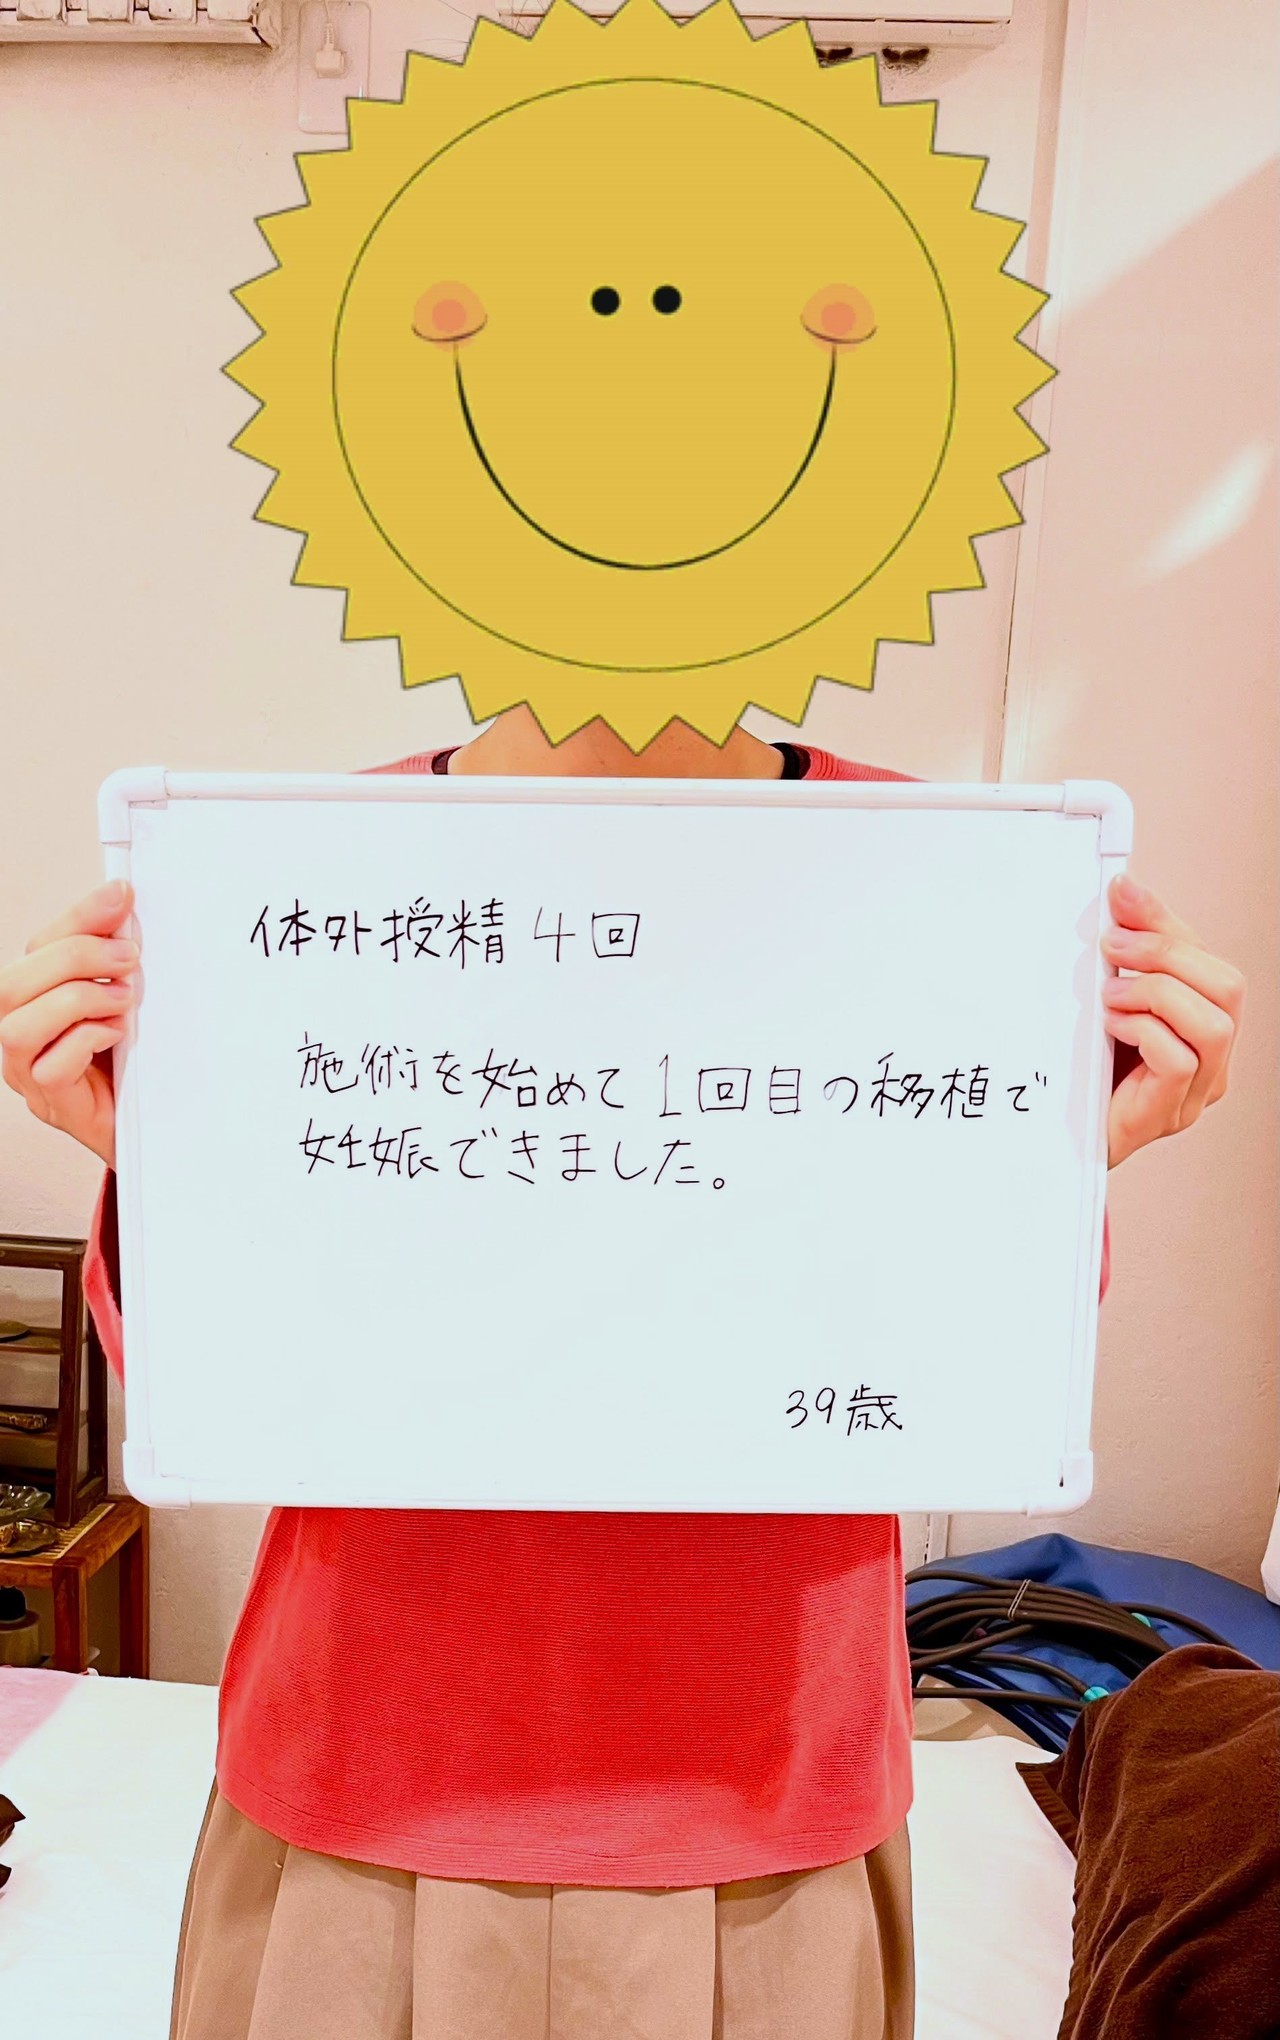 体外授精 4回
施術を始めて1回目の移植で
妊娠できました。
39歳